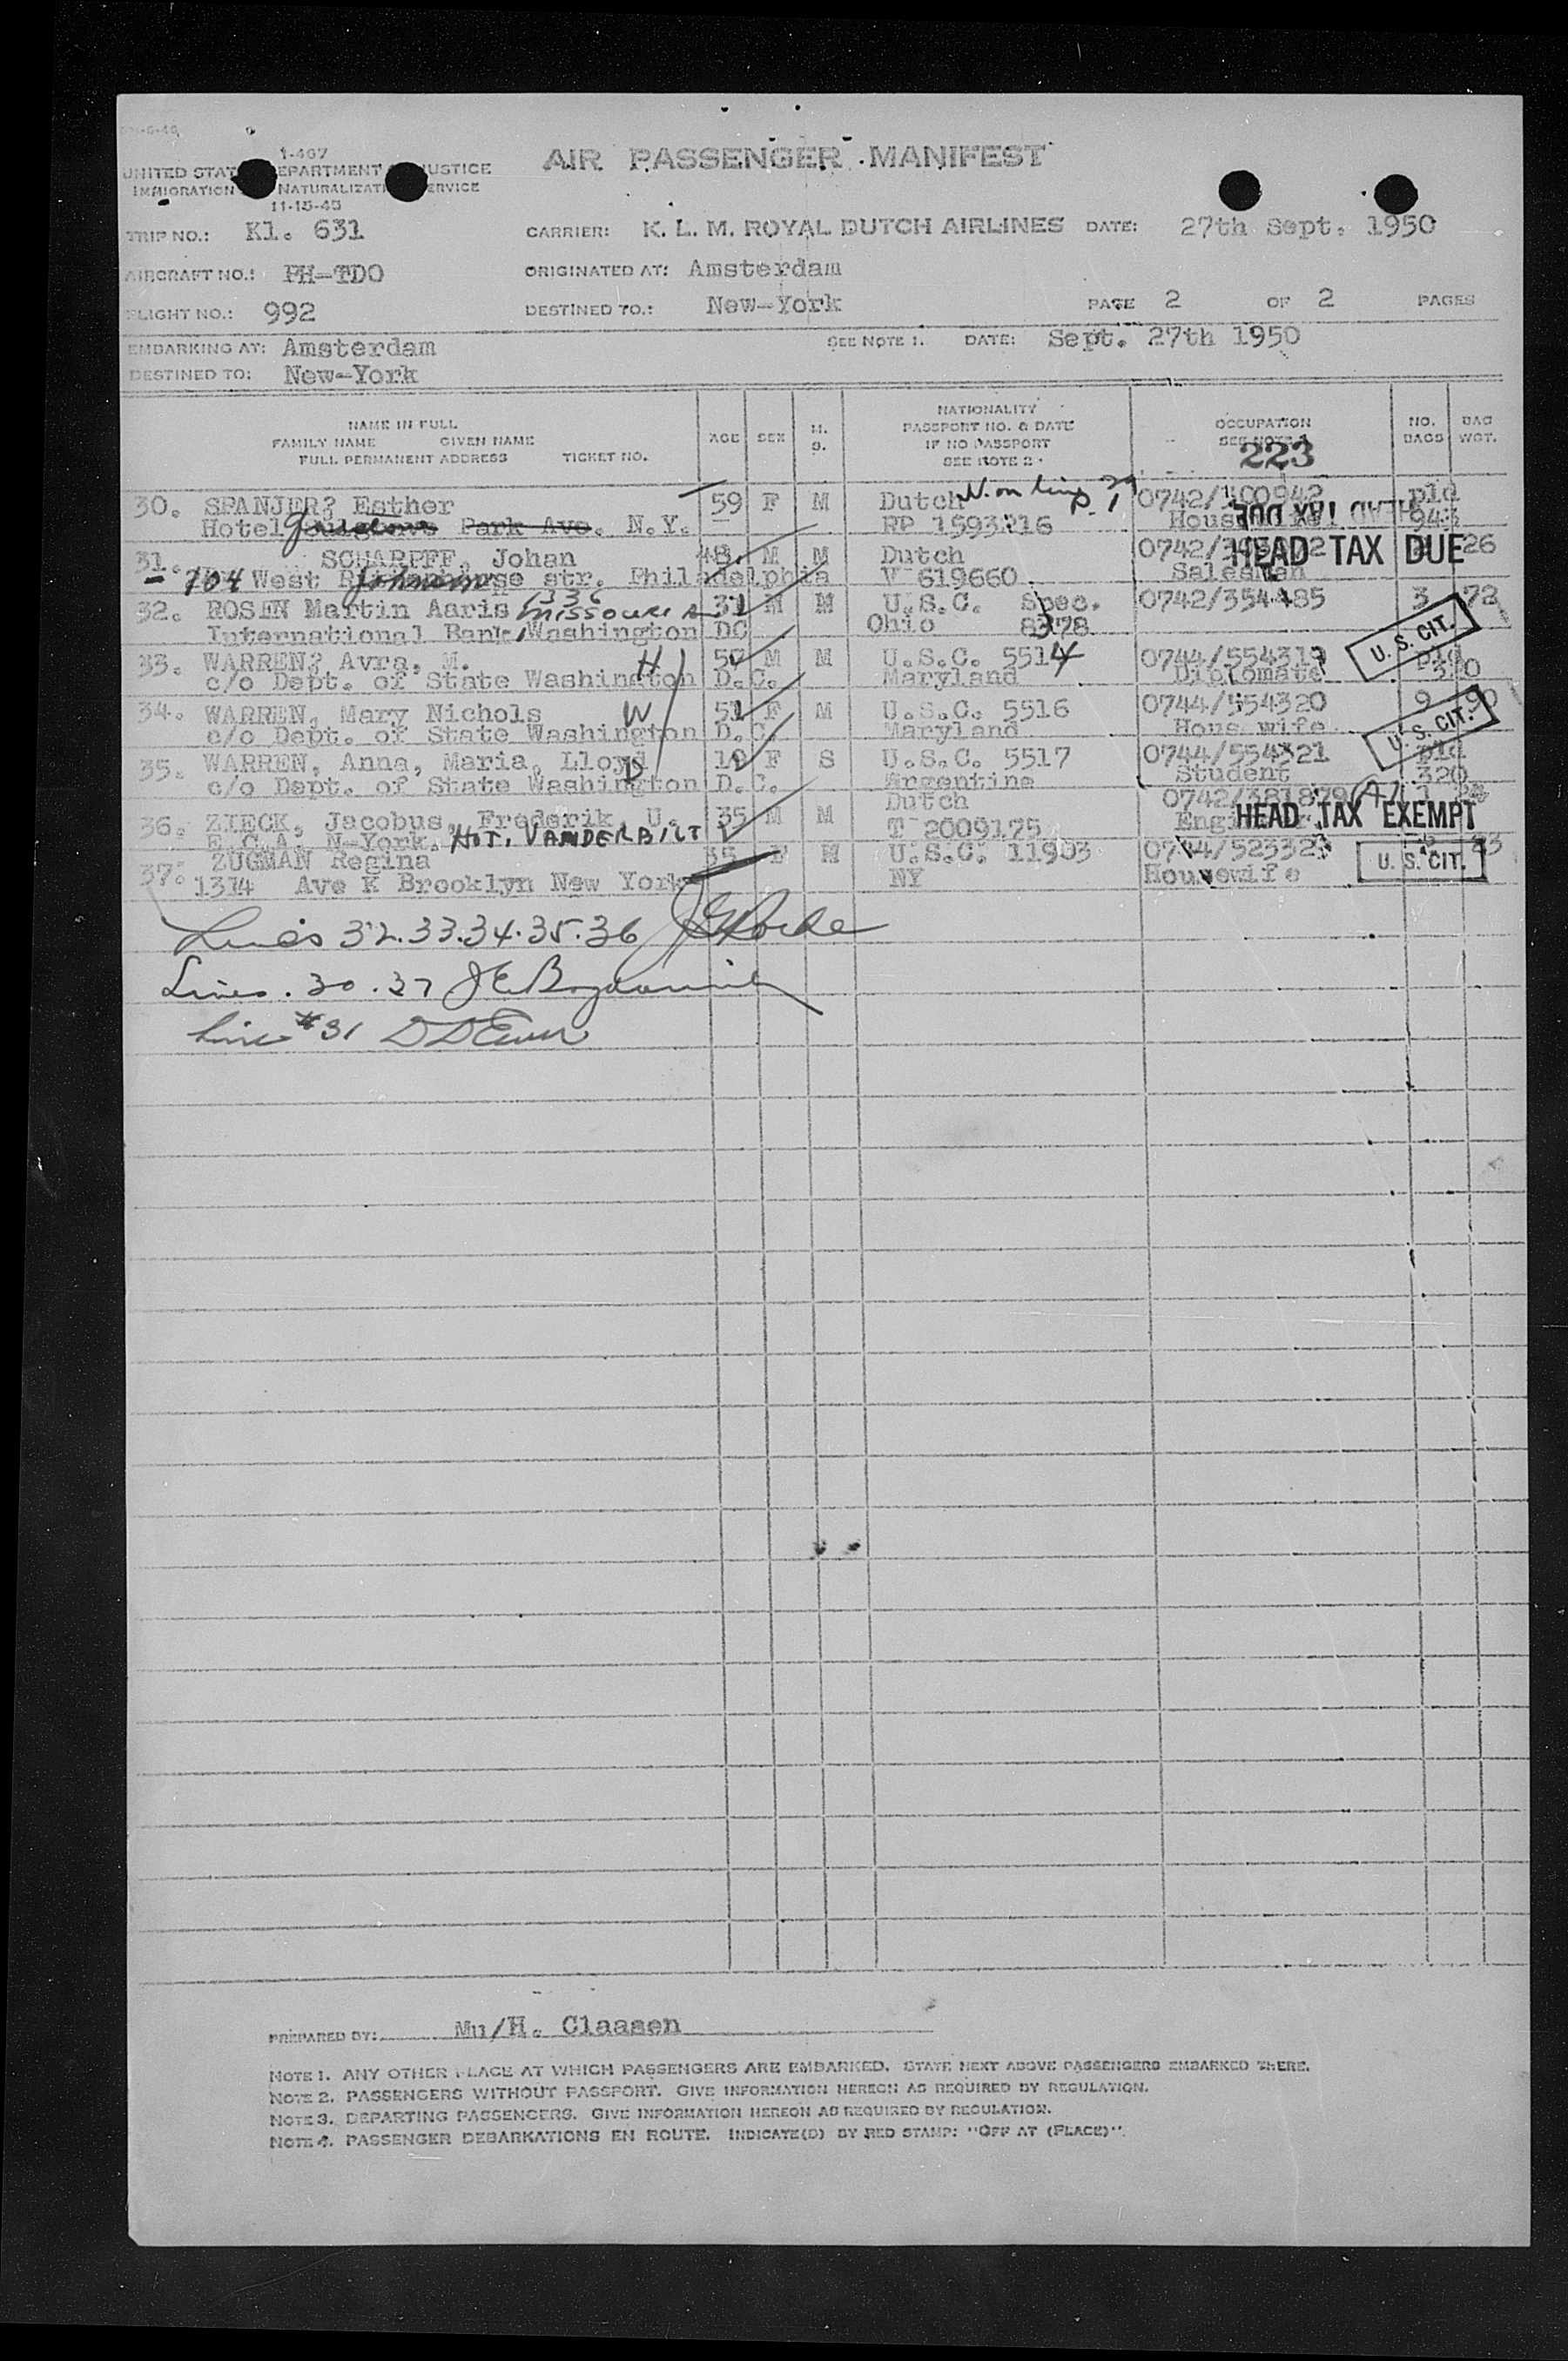 1-467
UNITED STAT EPARTMENT USTICE
IMMIGRATION NATURALIZATI ERVICE
11-15-45
AIR PASSENGER MANIFEST
TRIP NO.: Kl. 631 CARRIER: K. L. M. ROYAL DUTCH AIRLINES DATE: 27th Sept. 1950
AIRCRAFT NO.: PH-TDO ORIGINATED AT: Amsterdam
FLIGHT NO.: 992 DESTINED TO.: New-York PAGE 2 OF 2 PAGES
EMBARKING AT: Amsterdam SEE NOTE 1. DATE: Sept. 27th 1950
DESTINED TO: New-York
NAME IN FULL
FAMILY NAME GIVEN NAME
FULL PERMANENT ADDRESS TICKET NO.
AGE SEX M. S.
NATIONALITY
PASSPORT NO. & DATE
IF NO PASSPORT
SEE NOTE 2
OCCUPATION
223
NO. BAGS BAG WGT.
30. SPANJER? Esther 59 F M Dutch pld
Hotel Park Ave. N.Y. RP 1593216 943
HEAD TAX DUE
31. SCHARPFF, Johan 48. M M Dutch 26
704 West str. Philadelphia V 619660 Salesman
HEAD TAX DUE
32. ROSEN Martin Aaris 1336 MISSOURI A 31 M M U.S.C. Spec. 0742/354485 3 72
International Bank, Washington DC Ohio 8378
U. S. CIT.
33. WARREN? Avra, M. H 57 M M U.S.C. 5514 0744/554319 pld
c/o Dept. of State Washington D.C. Maryland Diplomate 320
34. WARREN, Mary Nichols W 51 F M U.S.C. 5516 0744/554320 9 90
c/o Dept. of State Washington D.C. Maryland Hous wife
U. S. CIT.
35. WARREN, Anna, Maria, Lloyd D 19 F S U.S.C. 5517 0744/554321 pld
c/o Dept. of State Washington D.C. Argentine Student 320
36. ZIECK, Jacobus, Frederik, U. 35 M M Dutch 0742/381879
E.C.A. N-York. HOT. VANDERBILT T 2009175
HEAD TAX EXEMPT
37. ZUGMAN Regina 35 F M U.S.C. 11903 0744/523323 23
1314 Ave K Brooklyn New York NY Housewife
U. S. CIT.
Lines 32.33.34.35.36
Lines. 30.37
Line #31
PREPARED BY: Mu/H. Claasen
NOTE 1. ANY OTHER PLACE AT WHICH PASSENGERS ARE EMBARKED. STATE NEXT ABOVE PASSENGERS EMBARKED THERE.
NOTE 2. PASSENGERS WITHOUT PASSPORT. GIVE INFORMATION HEREON AS REQUIRED BY REGULATION.
NOTE 3. DEPARTING PASSENGERS. GIVE INFORMATION HEREON AS REQUIRED BY REGULATION.
NOTE 4. PASSENGER DEBARKATIONS EN ROUTE. INDICATE(D) BY RED STAMP: "OFF AT (PLACE)".